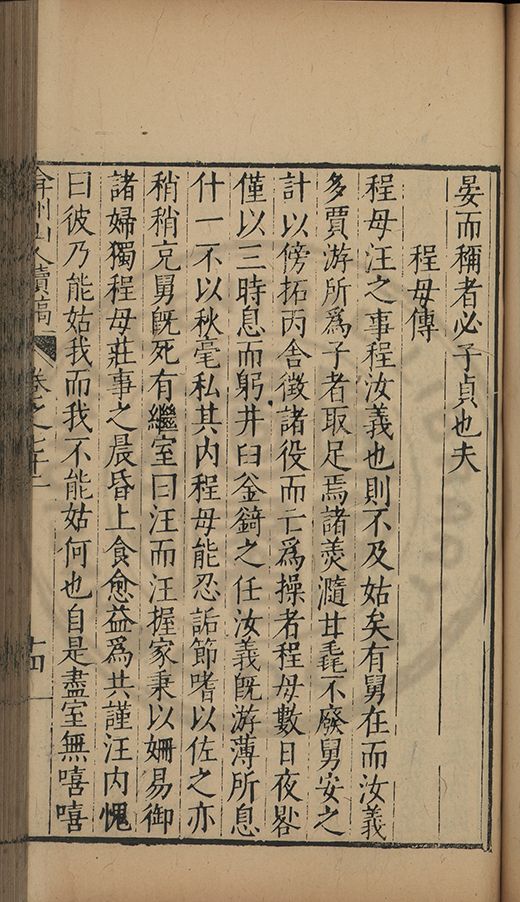 晏而稱者必子貞也夫
程母傳
程母汪之事程汝義也則不及姑矣有舅在而汝義
多賈游所爲子者取足焉諸羮瀡甘毳不廢舅安之
計以傍拓丙舎徵諸役而亡爲操者程母數日夜畧
僅以三時息而躬井臼釡錡之任汝義旣游薄所息
什一不以秋毫私其内程母能忍詬節嗜以佐之亦
稍稍克舅旣死有繼室曰汪而汪握家秉以姍易御
諸婦獨程母莊事之晨昏上食愈益爲共謹汪内愧
曰彼乃能姑我而我不能姑何也自是盡室無嘻嘻
弇州山人續稿
卷之七十二
十四